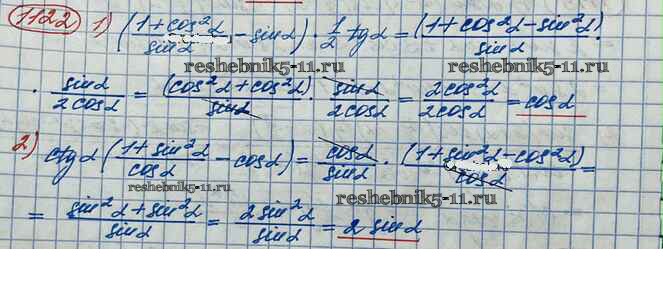 1122 1) ((1+cos²α)/sinα - sinα) · 1/2 tgα = (1+cos²α-sin²α)/sinα ·
reshebnik5-11.ru
reshebnik5-11.ru
· sinα/2cosα = (cos²α+cos²α)/sinα · sinα/2cosα = 2cos²α/2cosα = cosα
2) ctgα ((1+sin²α)/cosα - cosα) = cosα/sinα · (1+sin²α-cos²α)/cosα =
reshebnik5-11.ru
reshebnik5-11.ru
= (sin²α+sin²α)/sinα = 2sin²α/sinα = 2 sinα